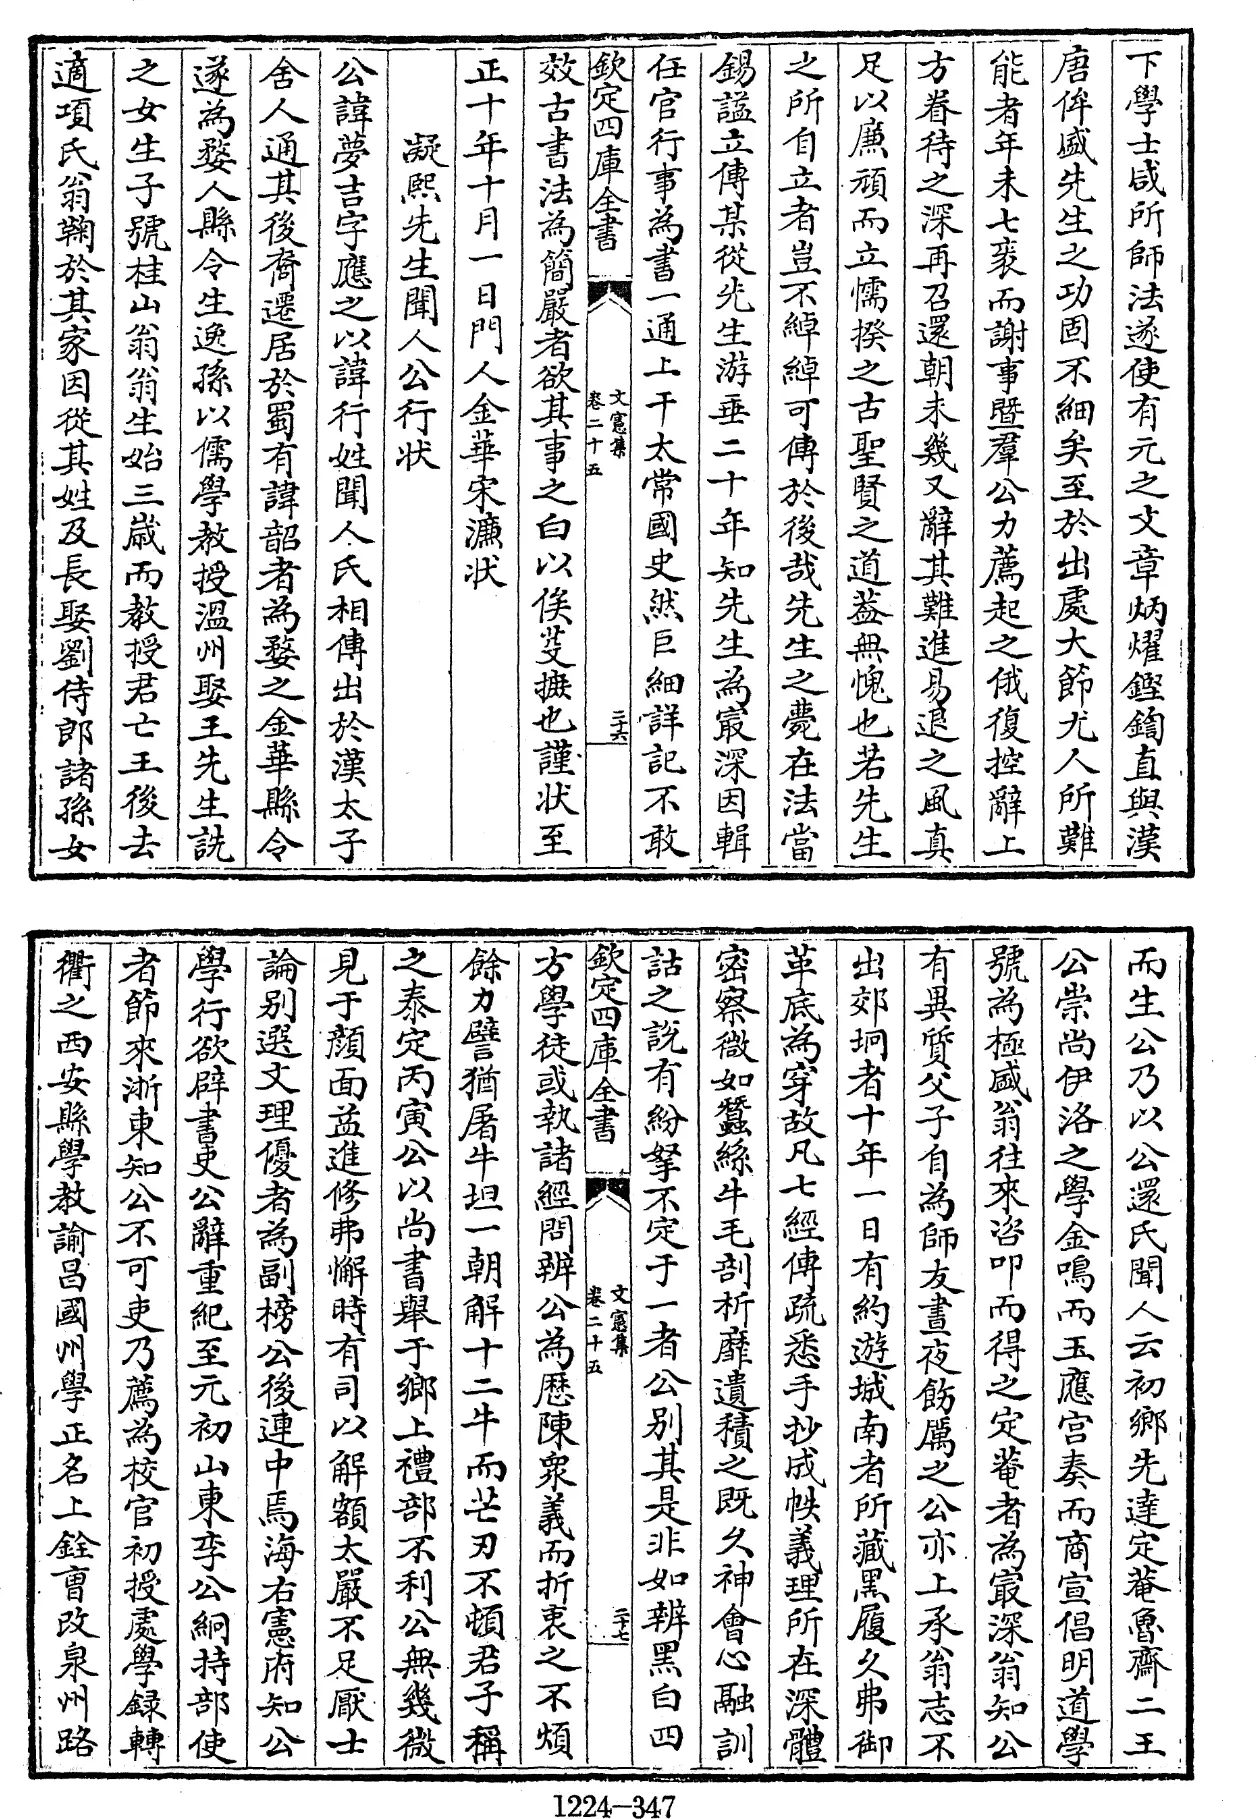 下學士咸所師法遂使有元之文章炳燿鏗鍧直與漢
唐侔盛先生之功固不細矣至於出處大節尤人所難
能者年未七袠而謝事暨羣公力薦起之俄復控辭上
方眷待之深再召還朝未幾又辭其難進易退之風真
足以廉頑而立懦揆之古聖賢之道葢無愧也若先生
之所自立者豈不綽綽可傳於後哉先生之薨在法當
錫諡立傳某從先生游垂二十年知先生為㝡深因輯
任官行事為書一通上干太常國史然巨細詳記不敢
欽定四庫全書
文憲集
卷二十五
二十六
效古書法為簡嚴者欲其事之白以俟芟撫也謹狀至
正十年十月一日門人金華宋濂狀
凝熙先生聞人公行狀
公諱夢吉字應之以諱行姓聞人氏相傳出於漢太子
舍人通其後裔遷居於蜀有諱韶者為婺之金華縣令
遂為婺人縣令生逸孫以儒學教授溫州娶王先生詵
之女生子號桂山翁翁生始三嵗而教授君亡王後去
適項氏翁鞠於其家因從其姓及長娶劉侍郎諸孫女
而生公乃以公還氏聞人云初鄉先達定菴魯齋二王
公崇尚伊洛之學金鳴而玉應宫奏而商宣倡明道學
號為極盛翁往來咨叩而得之定菴者為㝡深翁知公
有異質父子自為師友晝夜飭厲之公亦上承翁志不
出郊坰者十年一日有約遊城南者所藏黑履久弗御
革底為穿故凡七經傳疏悉手抄成帙義理所在深體
密察微如蠶絲牛毛剖析靡遺積之既久神會心融訓
詁之說有紛拏不定于一者公别其是非如辨黑白四
欽定四庫全書
文憲集
卷二十五
二十七
方學徒或執諸經問辨公為歷陳衆義而折衷之不煩
餘力譬猶屠牛坦一朝解十二牛而芒刃不頓君子稱
之泰定丙寅公以尚書舉于鄉上禮部不利公無幾微
見于顏面益進修弗懈時有司以解額太嚴不足厭士
論别選文理優者為副榜公後連中焉海右憲府知公
學行欲辟書吏公辭重紀至元初山東李公絅持部使
者節來浙東知公不可吏乃薦為校官初授處學録轉
衢之西安縣學教諭昌國州學正名上銓曹改泉州路
1224—347